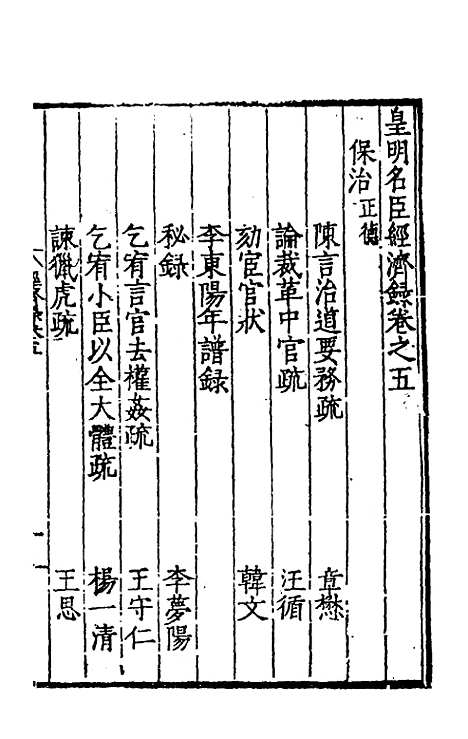 皇明名臣經濟錄卷之五
保治正德
陳言治道要務疏 章懋
論裁革中官疏 汪循
劾宦官狀 韓文
李東陽年譜録
秘録 李夢陽
乞宥言官去權姦疏 王守仁
乞宥小臣以全大體疏 楊一清
諫獵虎疏 王思